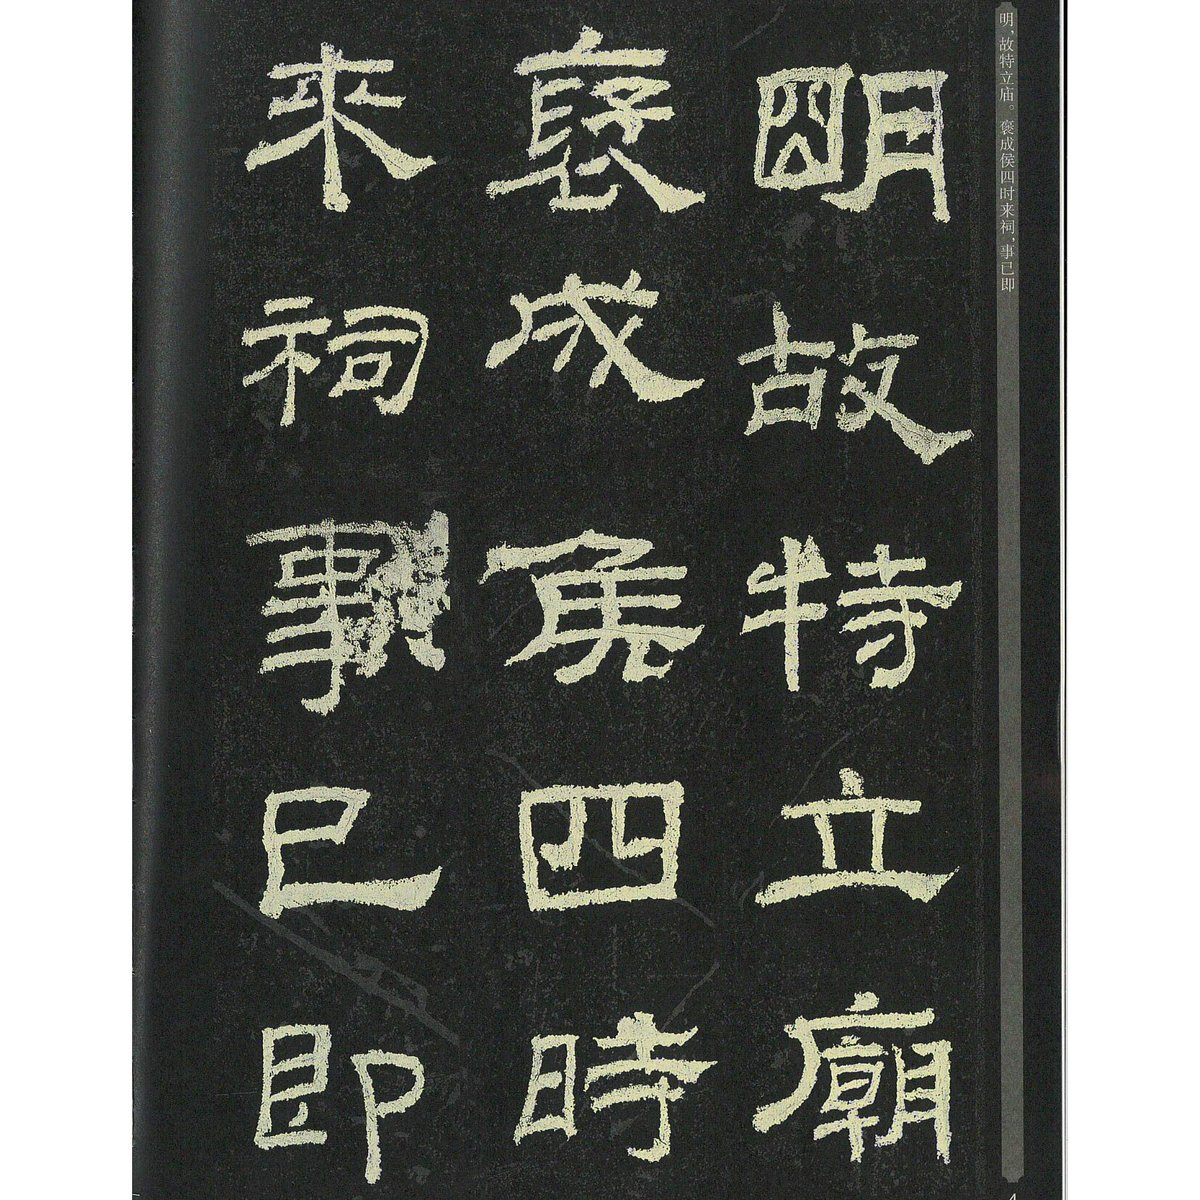 明，故特立庙。褒成侯四时来祠，事已即
明故特立廟
褒成侯四時
來祠事已即
4